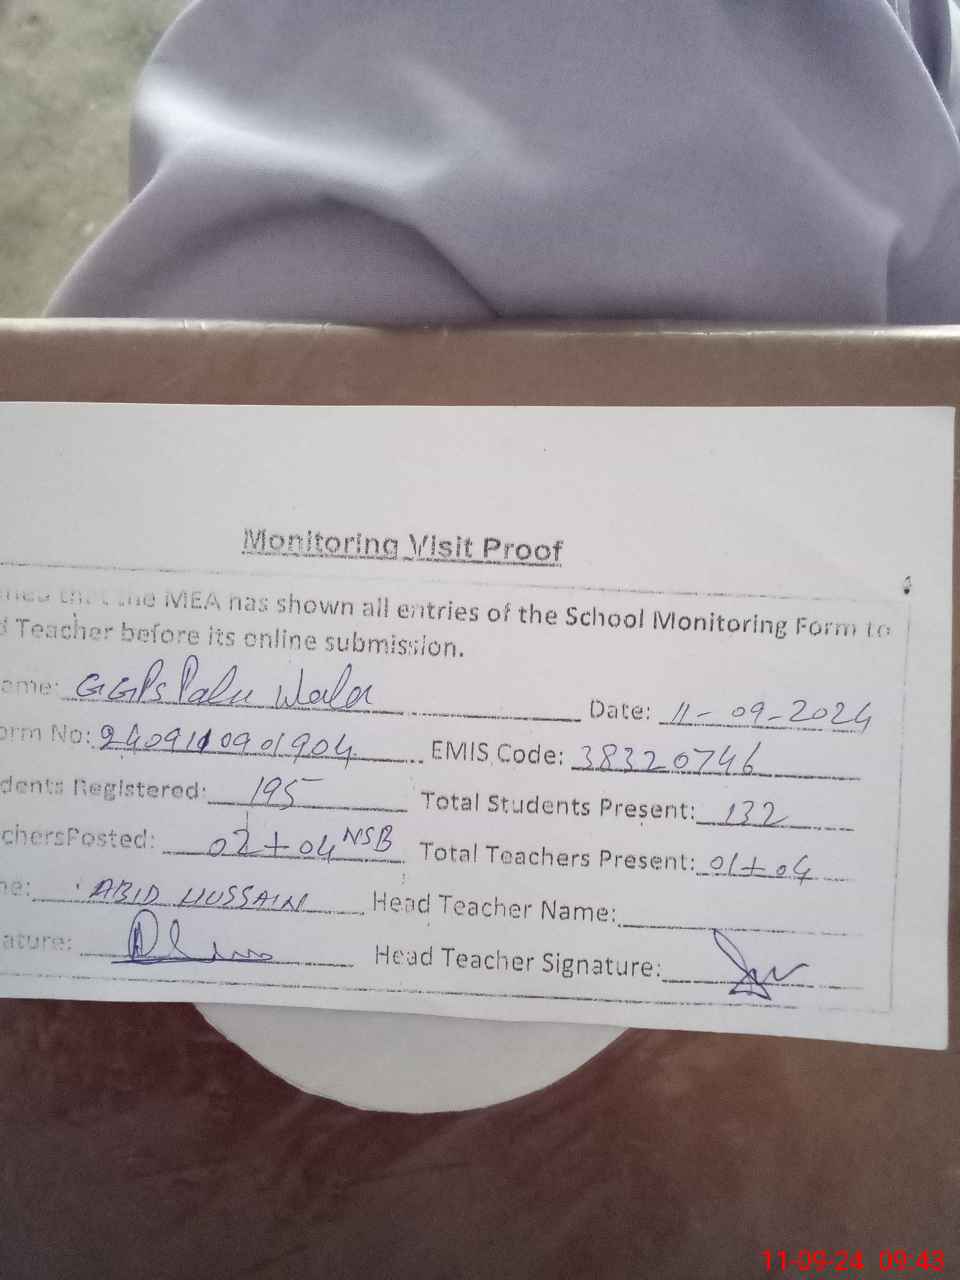 Monitoring Visit Proof
that the MEA has shown all entries of the School Monitoring Form to
Teacher before its online submission.
ame: GGPS Palu Wala Date: 11-09-2024
orm No: 2409110901904 EMIS Code: 38320746
dents Registered: 195 Total Students Present: 132
chersPosted: 02+04 NSB Total Teachers Present: 01+04
ne: ABID HUSSAIN Head Teacher Name:
ature: Head Teacher Signature:
11-09-24 09:43